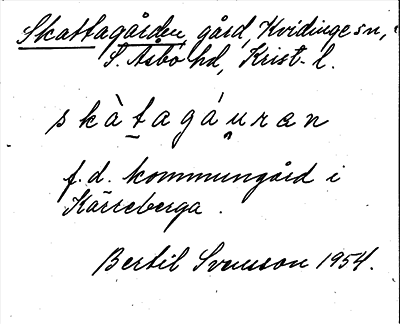 Skattagården, gård, Kvidinge sn,
S. Åsbo hd, Krist. l.
skàtagáuran
f.d. kommungård i
Kärreberga.
Bertil Svensson 1954.